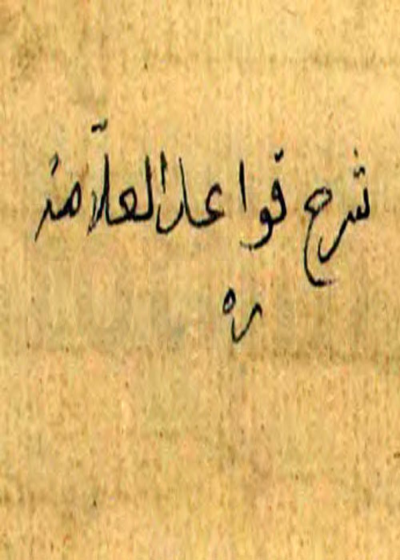 شرح قواعد العلّامة
ره